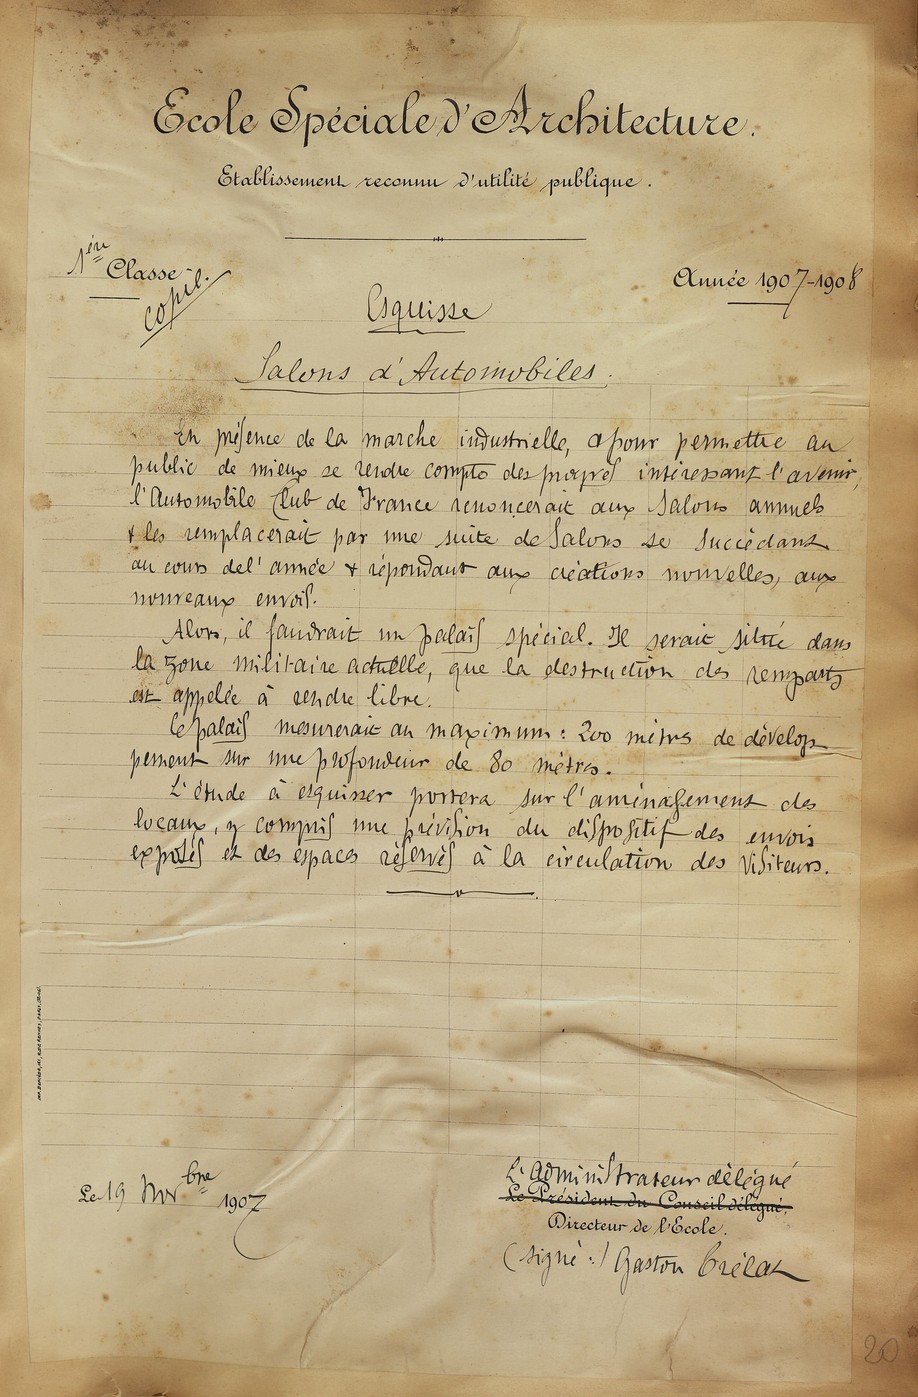 Ecole Spéciale d'Architecture.
Etablissement reconnu d'utilité publique.
1ère Classe
Année 1907-1908
copie.
Esquisse
Salons d'Automobiles.
En présence de la marche industrielle, & pour permettre au
public de mieux se rendre compte des progrès intéressant l'avenir,
l'Automobile Club de France renoncerait aux Salons annuels
& les remplacerait par une suite de Salons se succédant
au cours de l'année & répondant aux créations nouvelles, aux
nouveaux envois.
Alors, il faudrait un palais spécial. Il serait situé dans
la zone militaire actuelle, que la destruction des remparts
est appelée à rendre libre.
Ce palais mesurerait au maximum : 200 mètres de dévelop
pement sur une profondeur de 80 mètres.
L'étude à esquisser portera sur l'aménagement des
locaux, y compris une prévision du dispositif des envois
exposés et des espaces réservés à la circulation des Visiteurs.
Le 19 Novbre 1907
L'administrateur délégué
Le Président du Conseil délégué,
Directeur de l'Ecole.
(signé :) Gaston Trélat
20